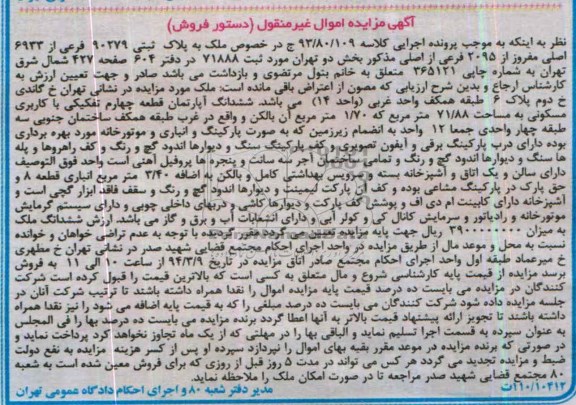 آگهی مزایده اموال غیرمنقول (دستور فروش)
نظر به اینکه به موجب پرونده اجرایی کلاسه 93/80/109 ج در خصوص ملک به پلاک ثبتی 90279 فرعی از 6933
اصلی مفروز از 2095 فرعی از اصلی مذکور بخش دو تهران مورد ثبت 71888 در دفتر 604 صفحه 427 شمال شرق
تهران به شماره چاپی 365121 متعلق به خانم بتول مرتضوی و بازداشت می باشد صادر و جهت تعیین ارزش به
کارشناس ارجاع و بدین شرح ارزیابی که مصون از اعتراض باقی مانده است: ملک مورد مزایده در نشانی تهران خ گاندی
خ دوم پلاک 6 طبقه همکف واحد غربی (واحد 14) می باشد. ششدانگ آپارتمان قطعه چهارم تفکیکی با کاربری
مسکونی به مساحت 71/88 متر مربع که 1/70 متر مربع آن بالکن و واقع در غرب طبقه همکف ساختمان جنوبی سه
طبقه چهار واحدی جمعا 12 واحد به انضمام زیرزمین که به صورت پارکینگ و انباری و موتورخانه مورد بهره برداری
بوده دارای درب پارکینگ برقی و آیفون تصویری و کف پارکینگ سنگ و دیوارها اندود گچ و رنگ و کف راهروها و پله
ها سنگ و دیوارها اندود گچ و رنگ و نمای ساختمان آجر سه سانت و پنجره ها پروفیل آهنی است واحد فوق التوصیف
دارای سالن و یک اتاق و آشپزخانه بسته و سرویس بهداشتی کامل و بالکن به اضافه 3/40 متر مربع انباری قطعه 8 و
حق پارک در پارکینگ مشاعی بوده و کف آن پارکت لیمینت و دیوارها اندود گچ و رنگ و سقف فاقد ابزار گچی است و
آشپزخانه دارای کابینت ام دی اف و پوشش کف پارکت و دیوارها کاشی و دربهای داخلی چوبی و دارای سیستم گرمایش
موتورخانه و رادیاتور و سرمایش کانال کی و کولر آبی و دارای انشعابات آب و برق و گاز می باشد. ارزش ششدانگ ملک
به میزان ریال جهت پایه مزایده تعیین می گردد مقرر گردیده با توجه به عدم تراضی خواهان و خوانده
نسبت به محل و موعد مال از طریق مزایده در واحد اجرای احکام مجتمع قضایی شهید صدر در نشانی تهران خ مطهری
خ میرعماد طبقه اول واحد اجرای احکام مجتمع صدر اتاق مزایده در تاریخ 94/3/9 از ساعت 10 الی 11 به فروش
برسد مزایده از قیمت پایه کارشناسی شروع و مال متعلق به کسی است که بالاترین قیمت را قبول کرده است شرکت
کنندگان در مزایده می بایست ده درصد قیمت پایه مزایده اموال را نقدا همراه داشته باشند تا ترتیب شرکت آنان در
جلسه مزایده داده شود شرکت کنندگان می بایست ده درصد مبلغی را که به قیمت پایه اضافه می شود را نیز نقدا همراه
داشته باشند تا تجویز ارائه پیشنهاد قیمت بالاتر به آنها اعطا گردد برنده مزایده می بایست ده درصد بها را فی المجلس
به عنوان سپرده به قسمت اجرا تسلیم نماید و الباقی بها را در مهلتی که از یک ماه تجاوز نخواهد کرد پرداخت نماید و
در صورتی که برنده مزایده در موعد مقرر بقیه بهای اموال را نپردازد سپرده او پس از کسر هزینه مزایده به نفع دولت
ضبط و مزایده تجدید می گردد هر کس می تواند در مدت 5 روز قبل از روزی که برای فروش معین شده است به شعبه
80 مجتمع قضایی شهید صدر مراجعه تا در صورت امکان ملک را ملاحظه نماید.
110/10412ت
مدیر دفتر شعبه 80 و اجرای احکام دادگاه عمومی تهران